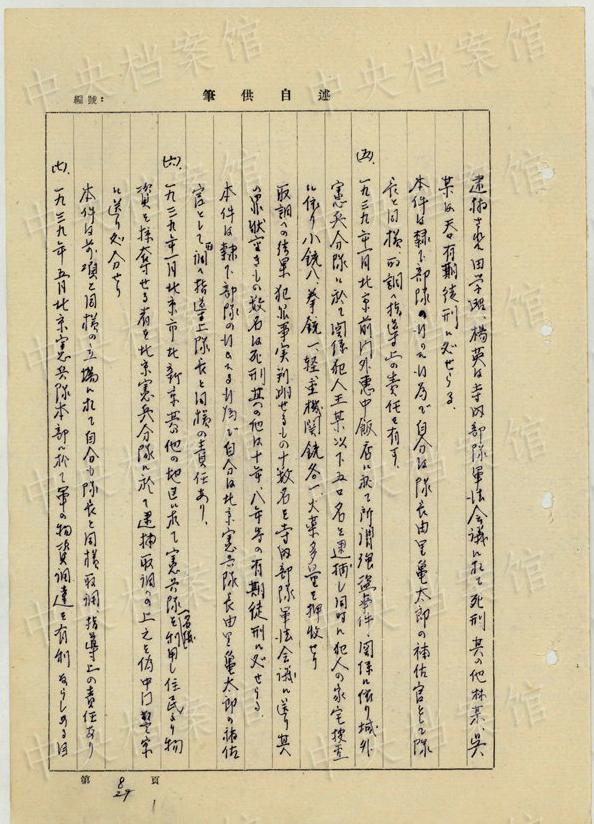 編號：
述自供筆
逮捕され田学昭、楊英は寺内部隊軍法会議に於て死刑 其の他林某、呉
某は各〻有期徒刑に処せらる.
本件は隷下部隊の行つた行為で自分は隊長由里亀太郎の補佐官として隊
長と同様の調べ指導上の責任を有す
(五) 一九三九年一月北京前門外恵中飯店に於て所謂強盗事件の関係に依り城外
憲兵分隊に於て関係犯人王某以下五〇名を逮捕し同時に犯人の家宅捜査
に依り小銃八、拳銃一、軽重機関銃各一、火薬多量を押收せり
取調への結果犯罪事実判明せるもの十数名を寺内部隊軍法会議に送り其
の罪状重きもの数名は死刑其の他は十年、八年等の有期徒刑に処せらる.
本件は隷下部隊の行へる行為で自分は北京憲兵隊長由里亀太郎の補佐
官として取調へ指導上隊長と同様の責任あり.
(六) 一九三九年一月北京市北新京其の他の地区に於て憲兵隊の名儀を利用し住民より物
資を採奪せる者を北京憲兵分隊に於て逮捕取調への上之を偽中门警察
に送り処分せり
本件は前項と同様の立場に於て自分も隊長と同様取調指導上の責任あり
(七) 一九三九年五月北京憲兵隊本部に於て軍の物資調達を有利ならしめる目
第 8/29 頁
1
中央档案馆